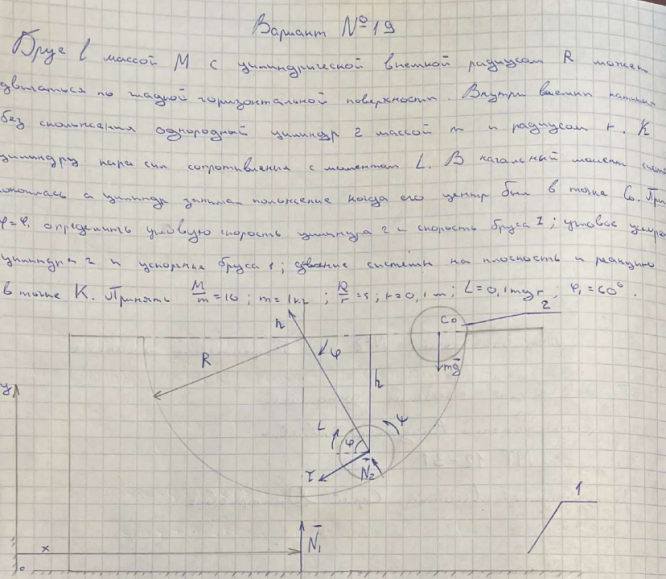 Вариант №19
Брус 1 массой M с цилиндрической выемкой радиусом R может
двигаться по гладкой горизонтальной поверхности. Внутри выемки
без скольжения однородный цилиндр 2 массой m и радиусом r. К
цилиндру пара сил сопротивления с моментом L. В начальный момент
а цилиндр занимал положение когда его центр был в точке C₀. При
φ=φ₁ определить угловую скорость цилиндра 2 и скорость бруса 1; угловое
цилиндра 2 и ускорение бруса 1; давление системы на плоскость и реакцию
в точке K. Принять M/m = 10; m = 1кг; R/r = 5; r = 0,1м; L = 0,1mgr; φ₁ = 60°.
n
C₀
2
φ
R
h
mg
y
L
φ
ψ
τ
N₂
1
x
N₁
o